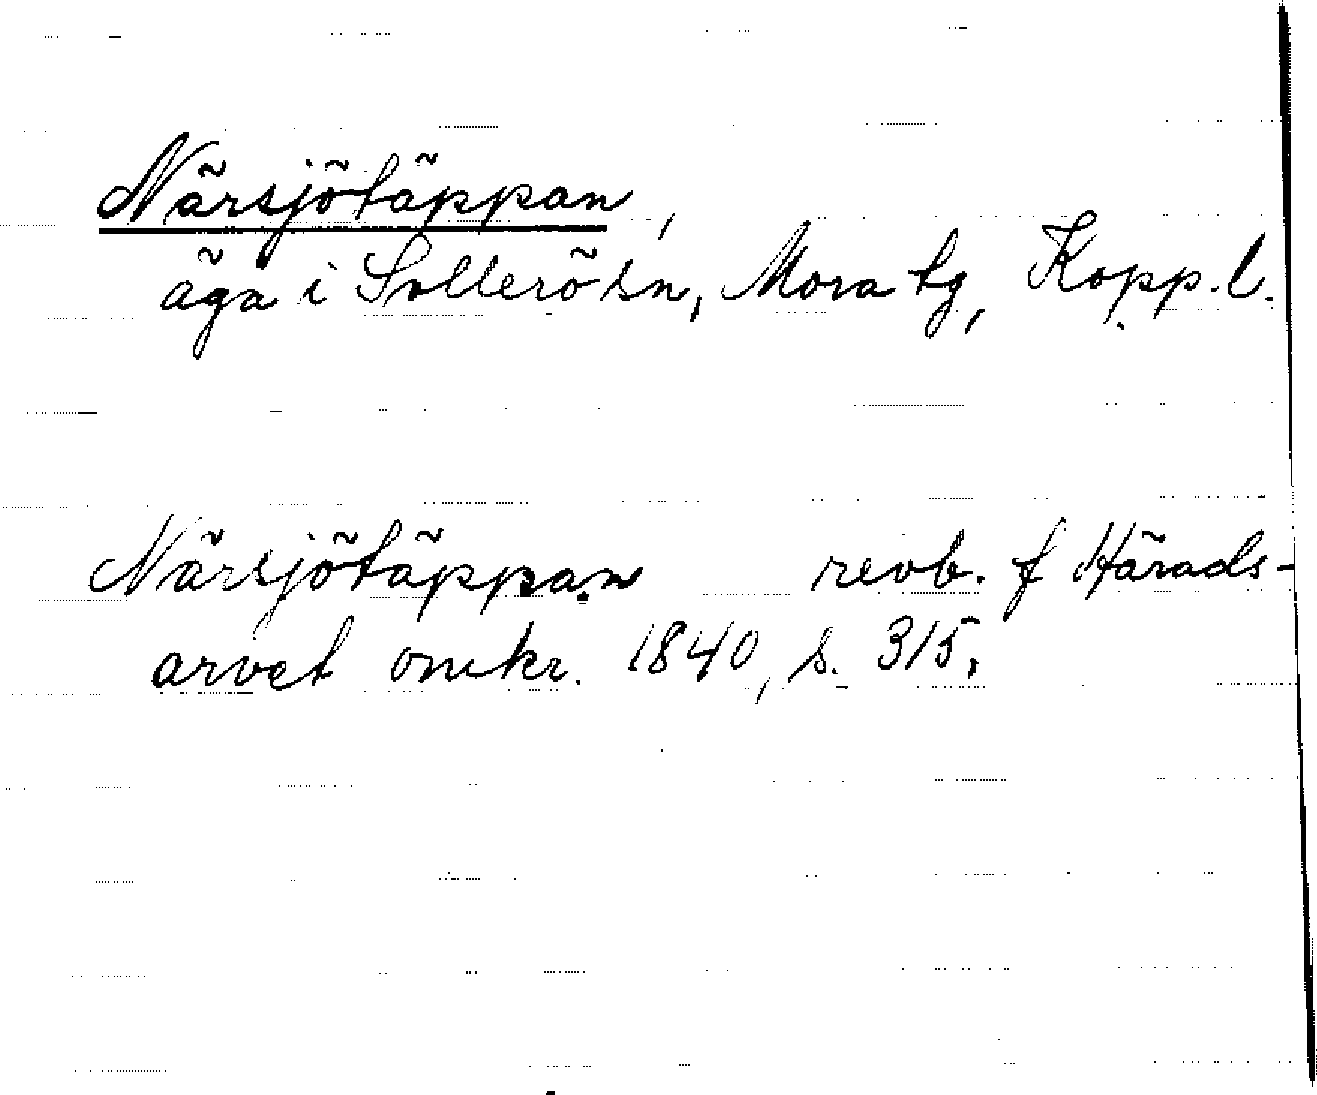 Närsjötäppan,
äga i Sollerö sn, Mora tg, Kopp. l.
Närsjötäppan revb. f Härads-
arvet omkr. 1840, s. 315.